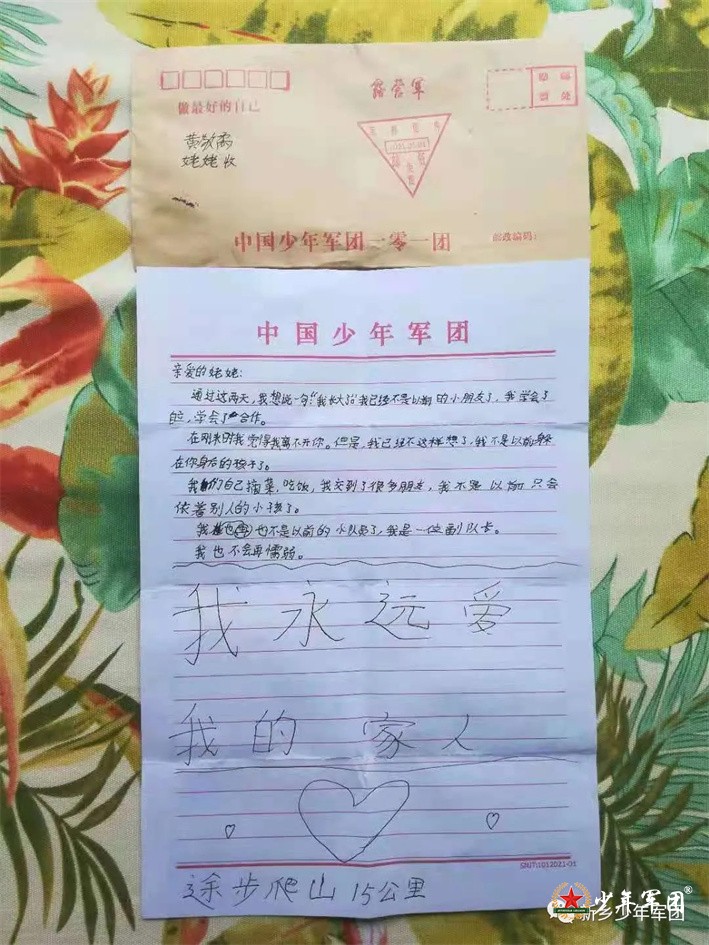 露营军
邮票
做最好的自己
姥姥收
中国少年军团一零一团
邮政编码:
中国少年军团
亲爱的姥姥:
通过这两天,我想说一句:“我长大了”我已经不是以前的小朋友了,我学会了
自立,学会了合作。
在刚来时我觉得我离不开你。但是,我已经不这样想了,我不是以前躲
在你身后的孩子了。
我们自己摘菜,吃饭,我交到了很多朋友,我不是以前只会
依着别人的小孩了。
我也不是以前的小队员了,我是一位副队长。
我也不会再懦弱。
我永远爱
我的家人
途步爬山15公里
少年军团®
新乡少年军团